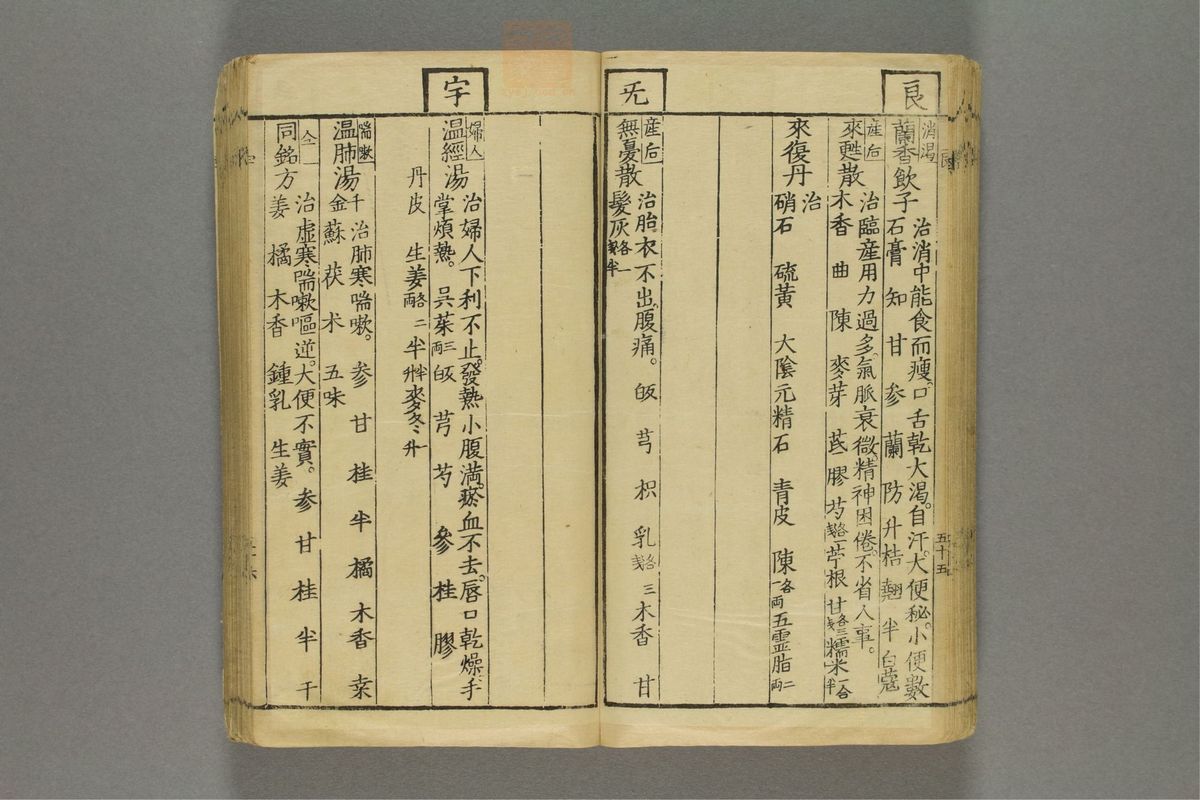 良
消渴
蘭香飲子
治消中能食而瘦。口舌乾大渴。自汗。大便秘。小便數
石膏 知 甘 参 蘭 防 升 桔 翹 半 白蔻
産后
來甦散
治臨産用力過多。氣脈衰微。精神困倦。不省人事。
木香 曲 陳 麥芽 芪 膠 芍 苧根 甘 糯米一合半
來復丹
治
硝石 硫黃 大陰元精石 青皮 陳各一両 五霊脂二両
旡
産后
無憂散
治胎衣不出。腹痛。 皈 芎 枳 乳 三 木香 甘
髮灰
宇
婦人
温經湯
治婦人下利不止。發熱小腹満。瘀血不去。唇口乾燥。手
掌煩熱。 呉茱三両 皈 芎 芍 參 桂 膠
丹皮 生姜各二両 半半升 麥冬一升
喘嗽
温肺湯
千金
治肺寒喘嗽。 参 甘 桂 半 橘 木香 棗
蘇 茯 朮 五味
仝
同銘方
治虚寒喘嗽嘔逆。大便不實。 参 甘 桂 半 干
姜 橘 木香 鍾乳 生姜
五十五